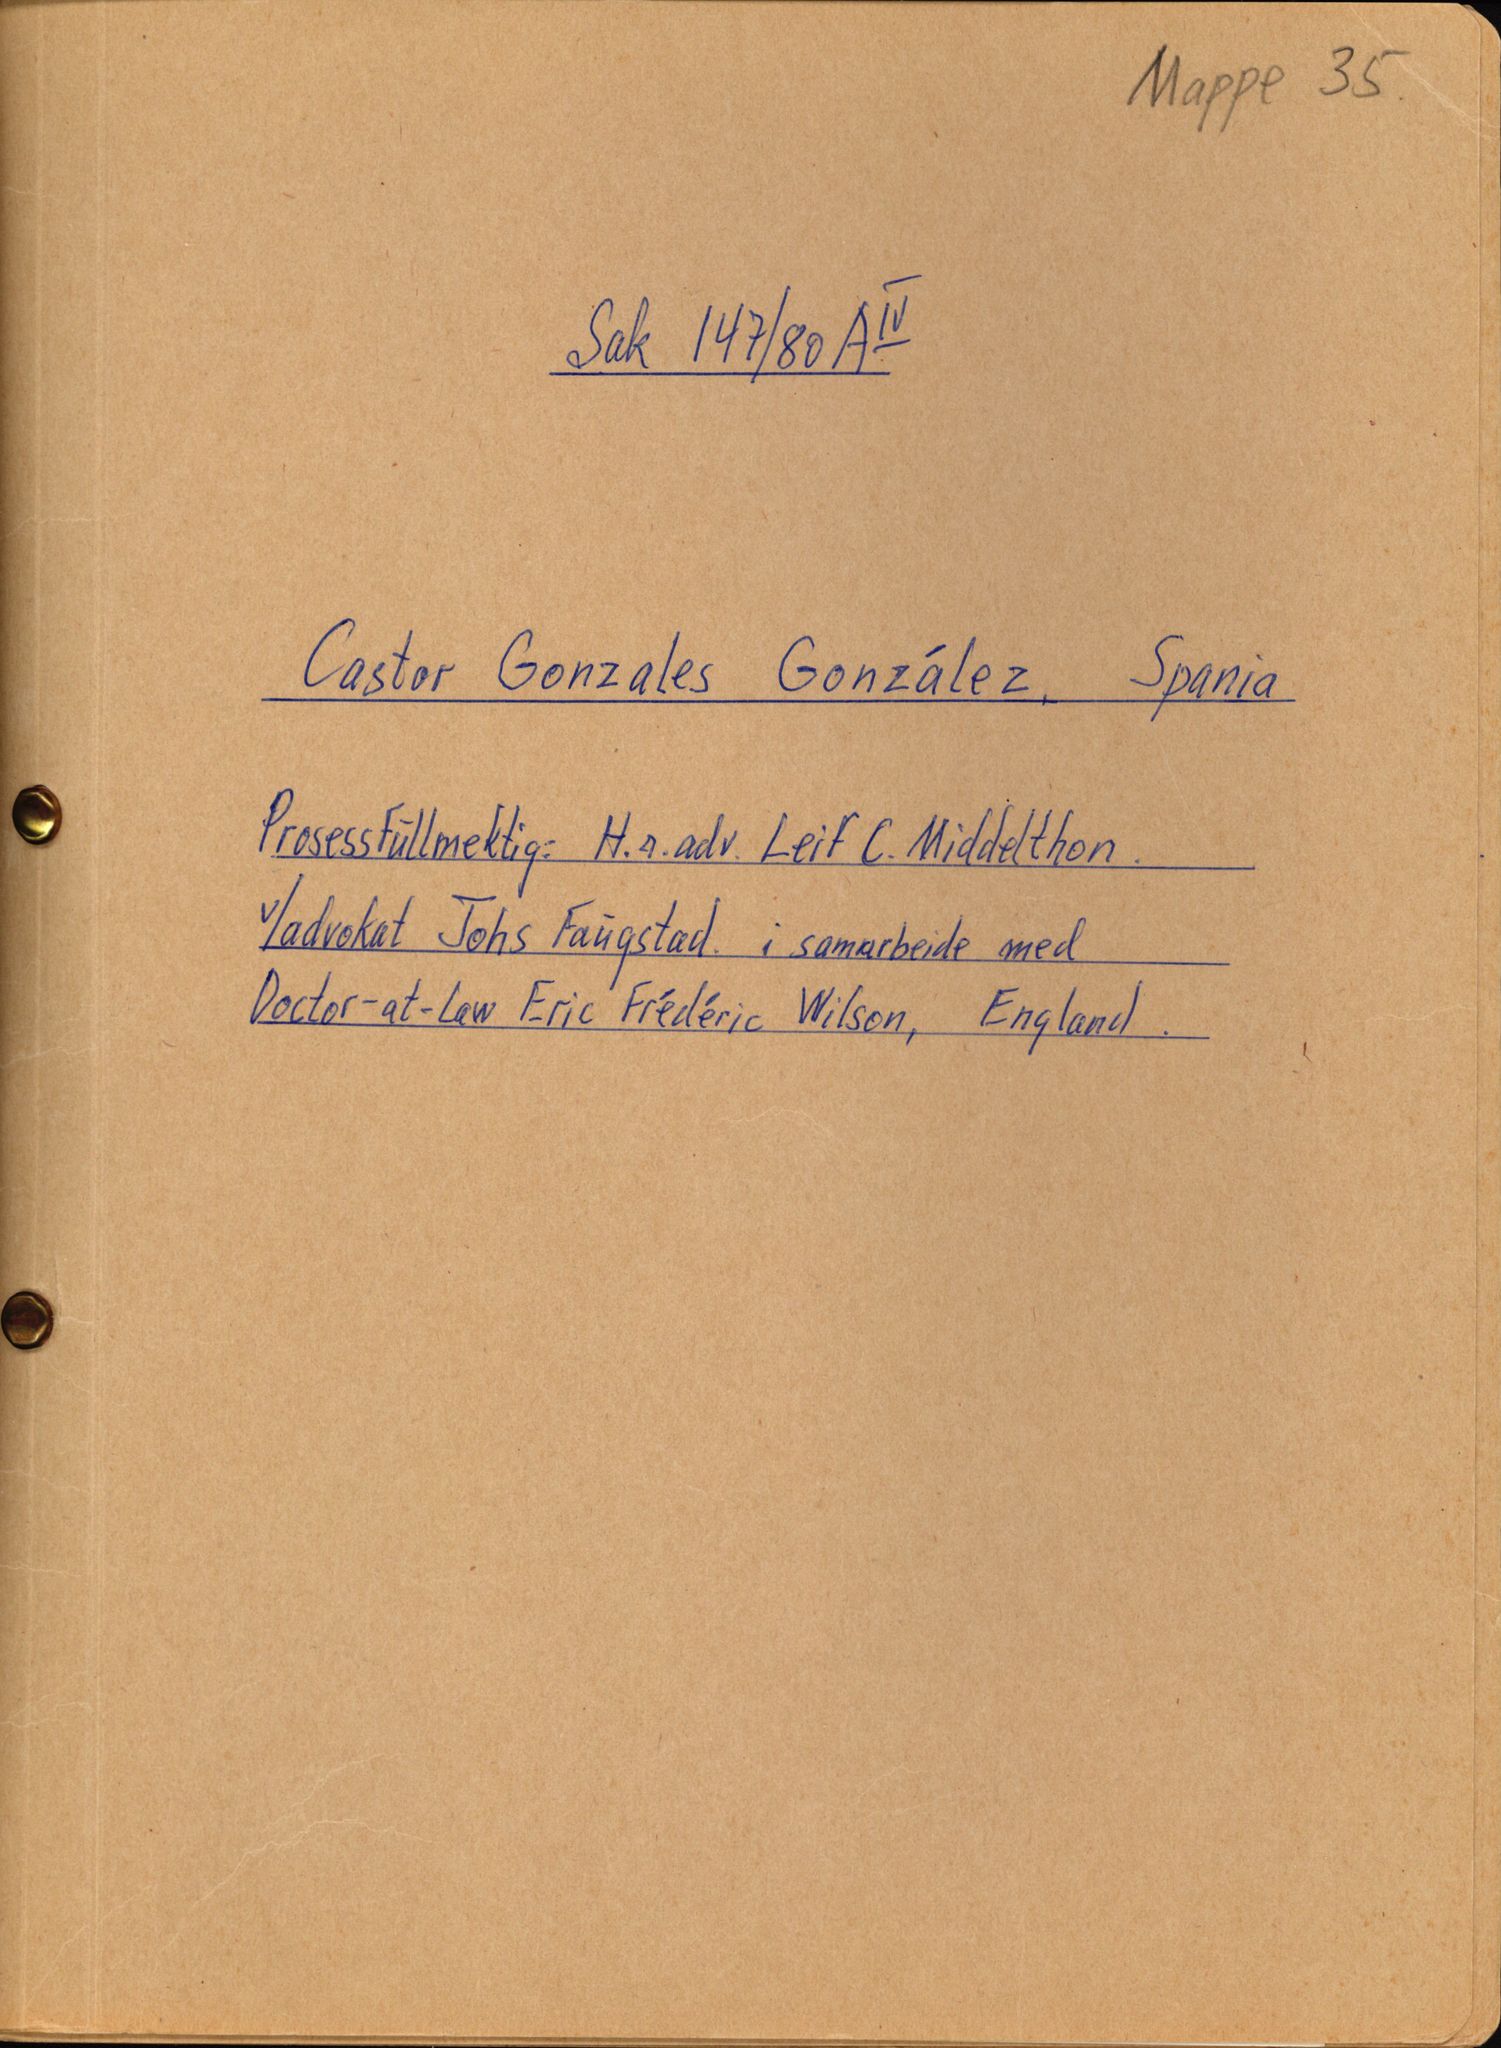 Mappe 35.
Sak 147/80 A IV
Castor Gonzales González, Spania
Prosessfullmektig: H.r.adv. Leif C. Middelthon.
v/advokat Johs Faugstad. i samarbeide med
Doctor-at-Law Eric Frédéric Wilson, England.